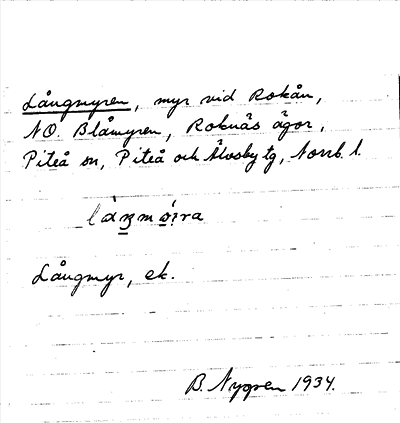 Långmyren, myr vid Rokån,
NO. Blåmyren, Roknäs ägor,
Piteå sn, Piteå och Älvsby tg, Norrb. l.
Långmyr, ek.
B. Nygren 1934.